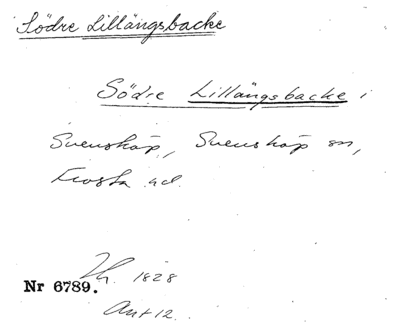 Södre Lillängsbacke
Södre Lillängsbacke i
Svensköp, Svensköp sn,
Frosta hd.
Th. 1828
Nr 6789.
Ant 12.